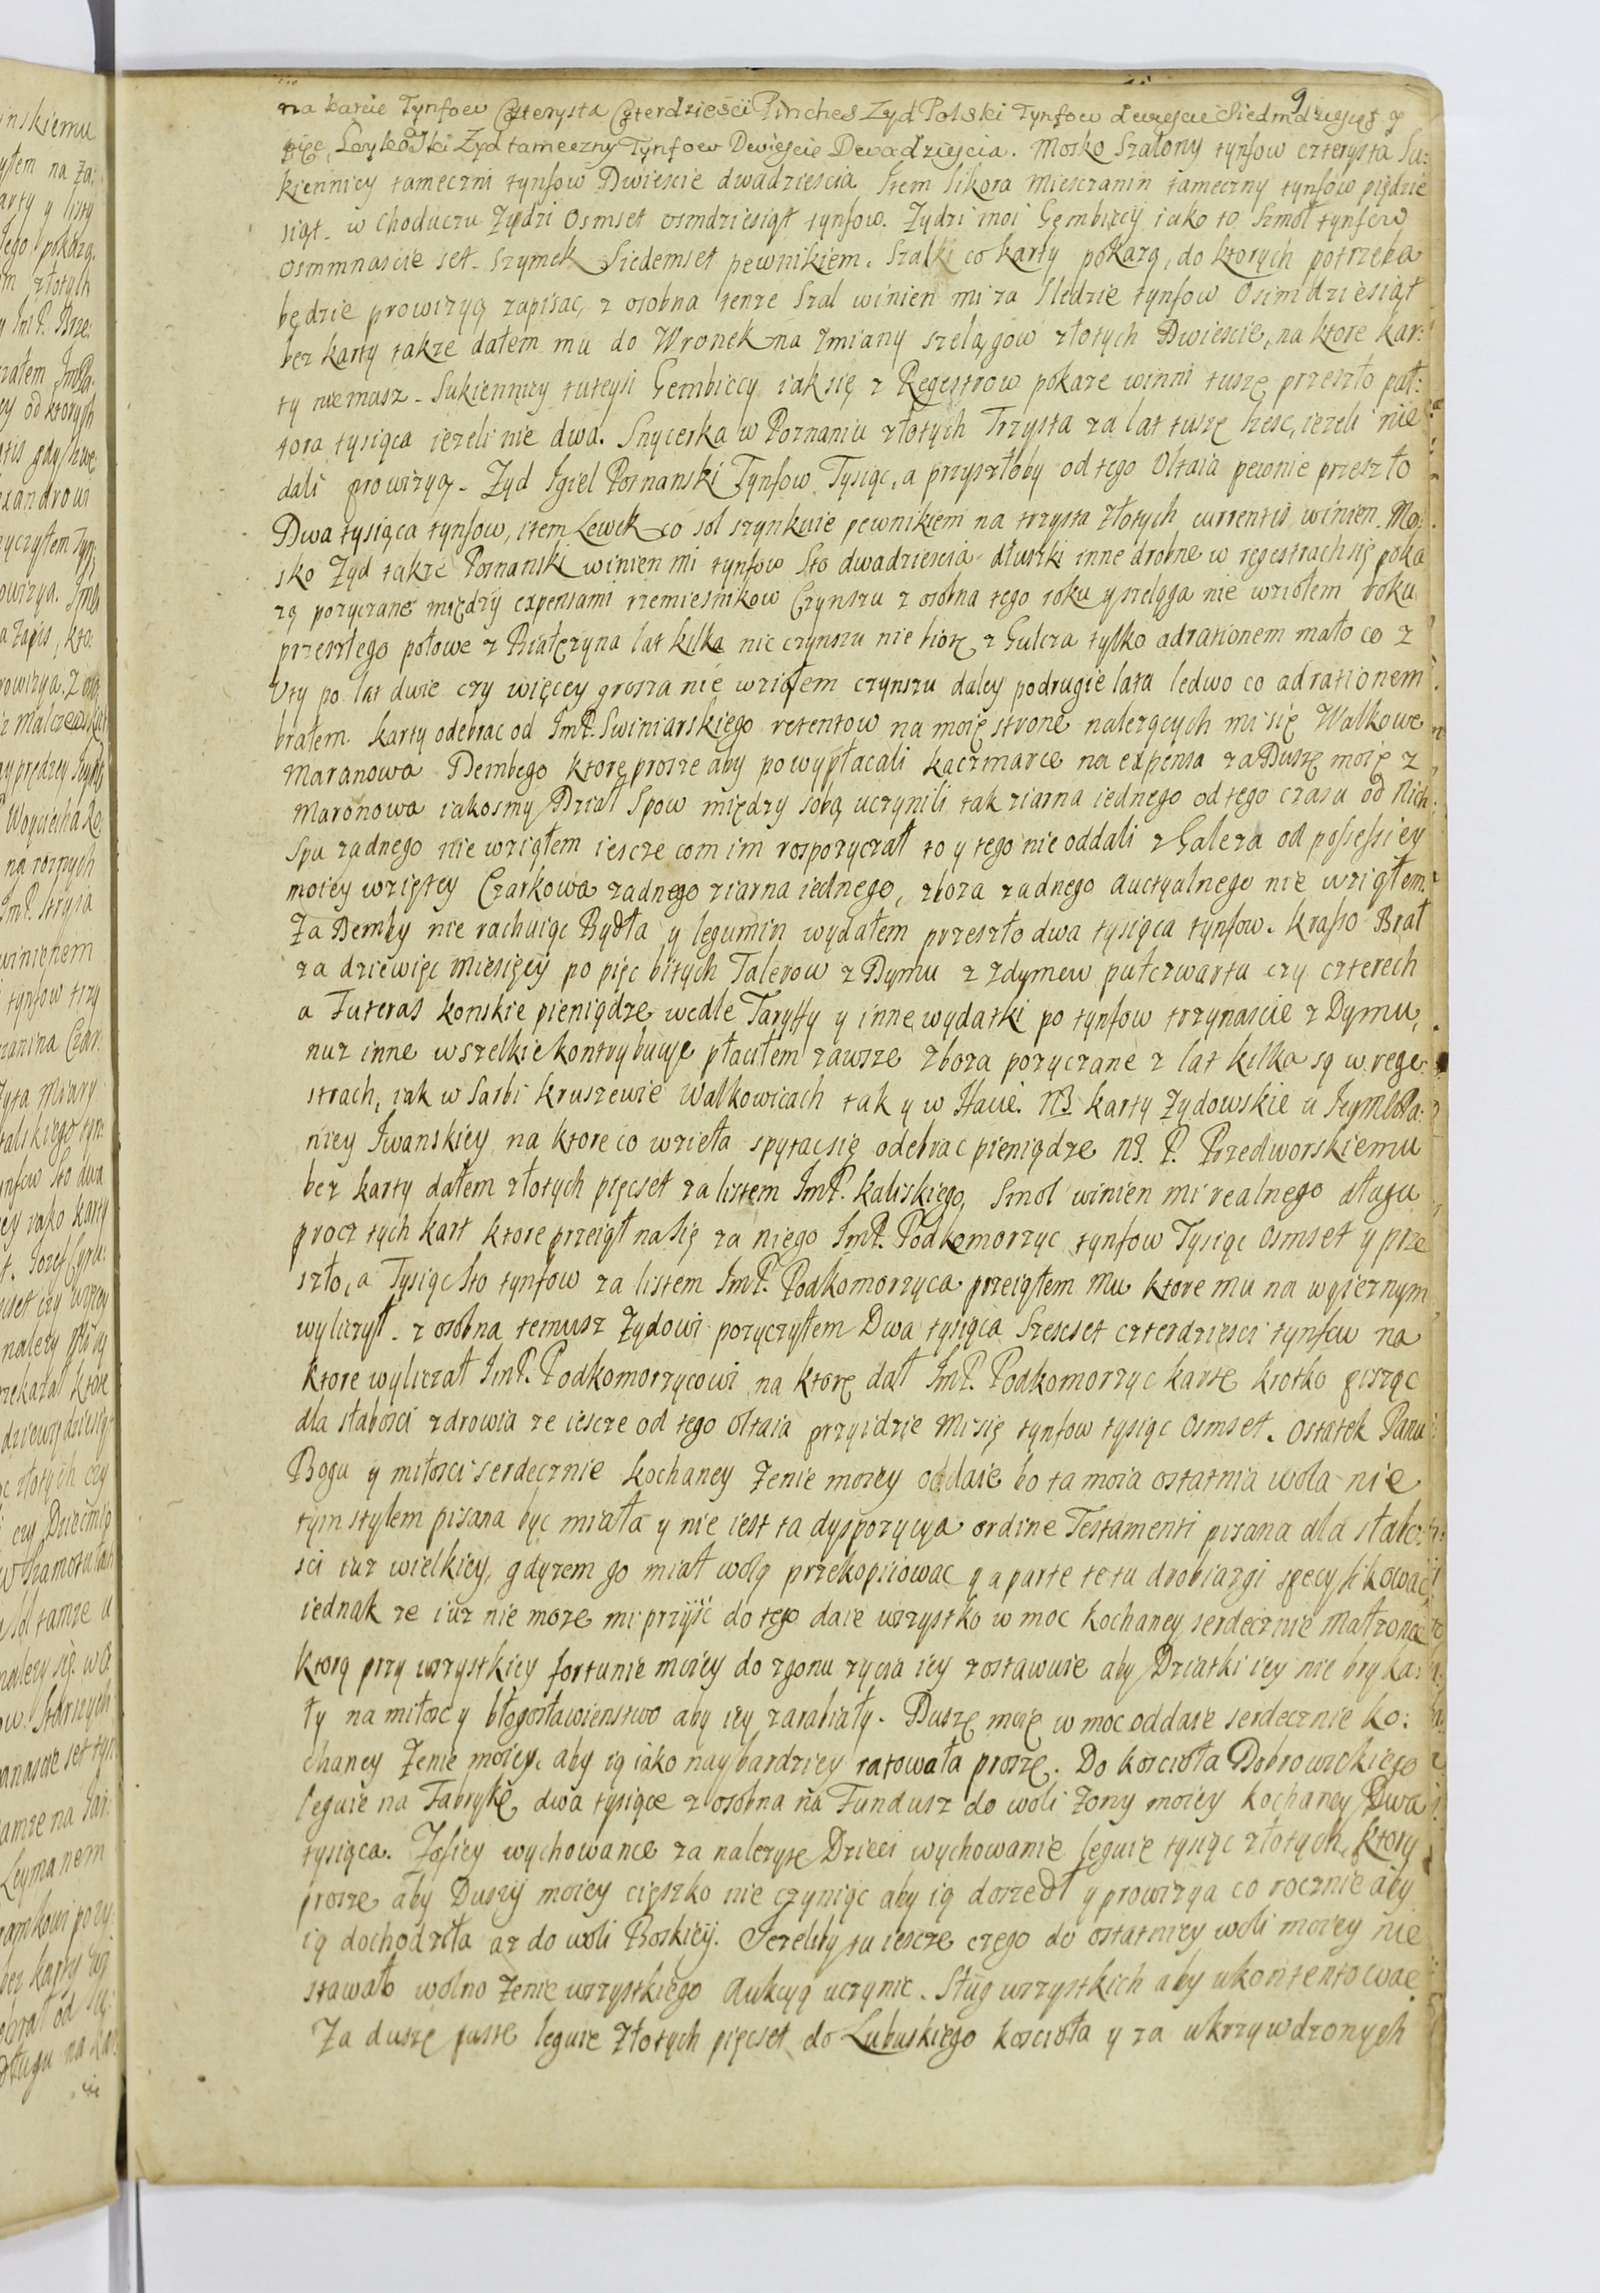 9
na karcie Tynfow Czterysta Czterdziesci Pinches Zyd Polski Tynfow dwiescie Siedmdziesiąt y
pięc, Zyd tameczny Tynfow Dwiescie Dwadziescia. Mosko Szalony tynfow czterysta Su:
kiennicy tameczni tynfow Dwiescie dwadziescia Item Sikora Miesczanin tameczny tynfow pięcdzie
siąt. w Choduczu Żydzi Osmset osmdziesiąt tynfow. Żydzi moi Gęmbiccy iako to Szmol tynfow
osmmnascie set. Szymek Siedemset pewnikiem. Szalki co karty pokazą, do ktorych potrzeba
będzie prowizyą zapisac, z osobna tenze Szal winien mi za Sledzie tynfow Osimdziesiąt
bez karty takze dałem mu do Wronek na Zmiany szelągow złotych Dwiescie, na ktore kar:
ty niemasz. Sukiennicy tuteysi Gembiccy iak się z Regestrow pokaze winni tuszę przeszło puł:
tora tysiąca iezeli nie dwa. Snycerka w Poznaniu złotych Trzysta za lat tuszę szesc, iezeli nie
dali prowizyą. Żyd Igiel Poznanski Tynfow Tysiąc, a przyszłoby od tego Oltaia pewnie przeszło
Dwa tysiąca tynfow, item Lewek co sol szynkuie pewnikiem na trzysta złotych currentis winien. Mo:
sko Żyd takze Poznanski winien mi tynfow Sto dwadziescia dłuszki inne drobne w regestrach się poka
zą pozyczane między expensami rzemiesnikow Czynszu z osobna tego roku y szeląga nie wziołem roku
przeszłego połowe z Białęzyna lat kilka nic czynszu nie biorę z Gulcza tylko adrationem mało co z
Uty po lat dwie czy więcey grosza nie wziołem czynszu daley podrugie lata ledwo co adrationem
brałem karty odebrac od ImP. Swiniarskiego retentow na moię stronę nalezących mi się Walkowe
Maranowa Dembego ktorę prosze aby powypłacali kaczmarce na expensa za Duszę moię z
Maronowa iakosmy Dział Spow między sobą uczynili tak ziarna iednego od tego czasu od Nich
Spu zadnego nie wziąłem iescze com im rospozyczał to y tego nie oddali z Galeza od possessiey
moiey wziętey Czarkowa zadnego ziarna iednego, zboza zadnego auctyalnego nie wziąłem.
Za Demby nie rachuiąc Bydła y legumin wydałem przeszło dwa tysiąca tynfow. Krasso Brał
za dziewięc miesięcy po pięc bitych Talerow z Dymu z zdymew pułczwarta czy czterech
a Futeras konskie pieniądze wedle Taryffy y inne wydatki po tynfow trzynascie z Dymu,
nuz inne wszelkie kontrybucye płaciłem zawsze Zboza pozyczane z lat kilka są w rege:
strach, iak w Sarbi Kruszewie Walkowicach tak y w Hucie. NB. karty Żydowskie u IeyMcPa:
niey Iwanskiey na ktore co wzieła spytac się odebrac pieniądze NB. P. Przedworskiemu
bez karty dałem złotych pięcset za listem ImP. kaliskiego, Smol winien mi realnego długu
procz tych kart ktore przeiął na się za niego ImP. Podkomorzyc tynfow Tysiąc Osmset y prze
szło, a Tysiąc sto tynfow za listem ImP. Podkomorzyca przeiąłem mu ktore mu na wyieznym
wyliczył. z osobna temusz Żydowi pozyczyłem Dwa tysiąca Szescset czterdziesci tynfow na
ktore wyliczał ImP. Podkomorzycowi na ktorę dał ImP. Podkomorzyc kartę krotko pisząc
dla słabosci zdrowia ze iescze od tego oltaia przyidzie mi się tynfow tysiąc osmset. Ostatek Panu
Bogu y miłosci serdecznie kochaney Żenie moiey oddaie bo ta moia ostatnia wola nie
tym stylem pisana byc miała y nie iest ta dyspozycya ordine Testamenti pisana dla słabo:
sci iuz wielkiey, gdyzem go miał wolą przekopiiowac y aparte te tu drobiazgi specyfikowac,
iednak ze iuz nie moze mi przyść do tego daie wszystko w moc kochaney serdecznie Małzonce
ktorą przy wszystkiey fortunie moiey do zgonu zycia iey zostawuie aby Dziatki iey nie bryka:
ły na miłosc y błogosławienstwo aby iey zarabiały. Duszę moię w moc oddaie serdecznie ko:
chaney Żenie moiey, aby ią iako naybardziey ratowała proszę. Do koscioła Dobrowickiego
leguie na Fabrykę dwa tysiące z osobna na Fundusz do woli Żony moiey kochaney Dwa
tysiąca. Zosiey wychowance za nalezyte Dzieci wychowanie leguie tysiąc złotych, ktory
prosze aby Duszy moiey cięszko nie czyniąc aby ią doszedł y prowizya co rocznie aby
ią dochodziła az do woli Boskiey. Iezeliby tu iescze czego do ostatniey woli moiey nie
stawało wolno Żenie wszystkiego Aukcyą uczynic. Sług wszystkich aby ukontentowac.
Za duszę leguie Złotych pięcset do Lubuskiego koscioła y za ukrzywdzonych